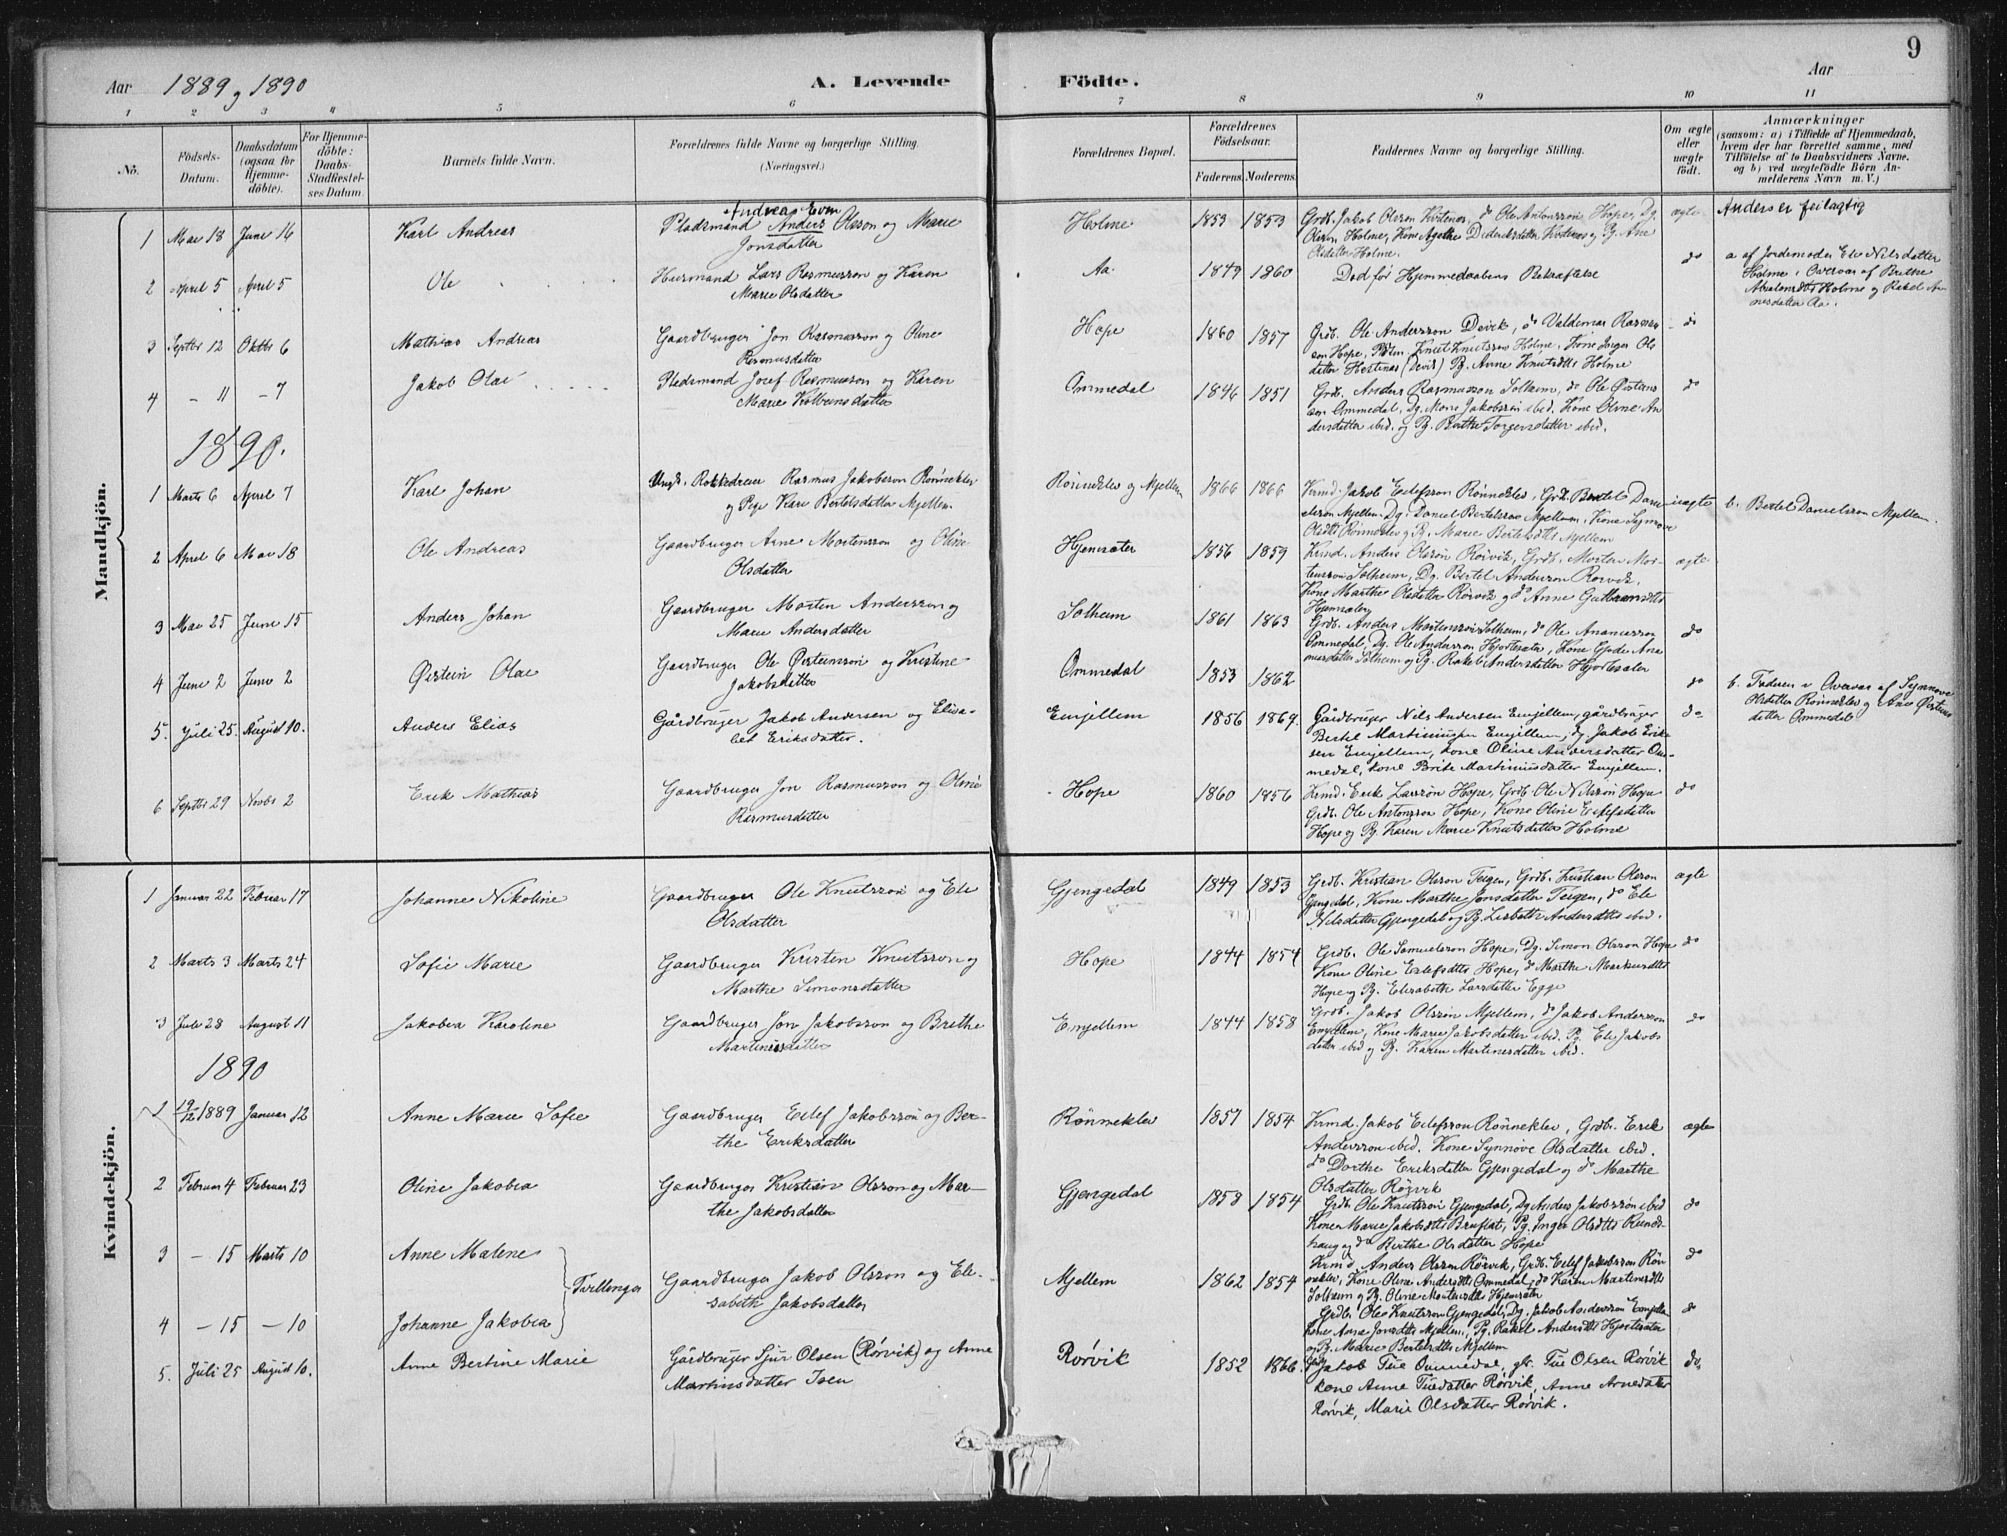 9
Aar 1889 og 1890 A. Levende Födte. Aar
1 2 3 4 5 6 7 8 9 10 11
No.
Födsels-Datum.
Daabsdatum (ogsaa for Hjemme-döbte).
For Hjemme-döbte: Daabs-Stadfæstel-ses Datum.
Barnets fulde Navn.
Forældrenes fulde Navne og borgerlige Stilling.
(Næringsvei.)
Forældrenes Bopæl.
Forældrenes Födselsaar.
Faderens. Moderens.
Faddernes Navne og borgerlige Stilling.
Om ægte eller uægte födt.
Anmærkninger
(saasom: a) i Tilfælde af Hjemmedaab, hvem der har forrettet samme, med Tilföielse af to Daabsvidners Navne, og b) ved uægtefödte Börn An-melderens Navn m. V.)
Mandkjön.
1 Mai 13 Juni 16 Karl Andreas
Andreas Even
Pladsmand Anders Olsson og Marie
Jonsdatter
Holme 1853 1853
Grdb. Jakob Olsson Hestenes, do Ole Antonsson Hope, Dg.
Olsson Holme, Kone Agathe Dideriksdatter Hestenes og Pg. Ane
Olsdatter Holme.
ægte
Anders er feilagtig
2 April 5 April 5 Ole
Husmand Lars Rasmusson og Karen
Marie Olsdatter
Aa 1849 1860
Död för Hjemmedaabens Bekræftelse
do
a af Jordemoder Ele Nilsdatter
Holme i Overvær af Brithe
Absalonsdtr Holme og Rakel An-
nesdatter Aa.
3 Septbr 12 Oktbr 6 Mathias Andreas
Gaardbruger Jon Rasmusson og Oline
Rasmusdatter
Hope 1860 1857
Grdb. Ole Andersson Devik, do Valdemar Rasmus-
son Hope, Knut Knutsson Holme, Kone Inger Ols
datter Hestenes (Devik) Pg. Anne Knutsdtr Holme
do
4 - 11 - 7 Jakob Olai
Pladsmand Josef Rasmusson og Karen
Marie Kolbeinsdatter
Ommedal 1846 1851
Grdb. Anders Rasmusson Solheim, do Ole Østens
son Ommedal, Dg. Mons Jakobsson ibid. Kone Oline An
dersdatter ibid. og Pg. Berthe Torgersdatter ibid.
do
1890.
1 Marts 6 April 7 Karl Johan
Ungk. Rokkedreier Rasmus Jakobsson Rønneklev
og Pige Kari Bertelsdatter Mjellem.
Rønneklev og Mjellem 1866 1866
Krmd. Jakob Eilefsson Rønneklev, Grdb. Bertel Dani
elsson Mjellem. Dg. Daniel Bertelsson Mjellem, Kone Synnøve
Olsdtr Rønneklev, Pg. Marie Bertelsdtr Mjellem
uægte
b. Bertel Danielsson Mjellem.
2 April 6 Mai 18 Ole Andreas
Gaardbruger Arne Mortensson og Oline
Olsdatter
Hjemsæter 1856 1859
Krmd. Anders Olsson Rørvik, Grdb. Morten Mor-
tensson Solheim, Dg. Bertel Andersson Rørvik.
Kone Marthe Olsdatter Rørvik og do Anne Gutbransdtr
Hjemsæter
ægte
3 Mai 25 Juni 15 Anders Johan
Gaardbruger Morten Andersson og
Marie Andersdatter
Solheim 1861 1863
Grdb. Anders Mortensson Solheim, do Ole Ananiasson
Ommedal, Dg. Ole Andersson Hjortesæter, Kone Gjøde Ras
musdatter Solheim og Pg. Rakel Andersdatter Hjortesæter
do
4 Juni 2 Juni 2 Østein Olai
Gaardbruger Ole Østeinsson og Kristine
Jakobsdatter
Ommedal 1853 1862
do
b. Faderen i Overvær af Synnøve
Olsdatter Rønneklev og Ane Østens
datter Ommedal
5. Juli 25. August 10. Anders Elias
Gårdbruger Jakob Andersen og Elisa-
bet Eriksdatter.
Emjellem 1856 1869.
Gårdbruger Nils Andersen Emjellem, gårdbruger
Bertel Martinussen Emjellem, dg. Jakob Erik-
sen Emjellem, kone Oline Andersdatter Om-
medal, kone Brite Martinusdatter Emjellem.
do
6 Septbr 29 Novbr 2 Erik Mathias
Gaardbruger Jon Rasmusson og Oline
Rasmusdatter
Hope 1860 1856
Krmd. Erik Larsson Hope, Grdb. Ole Nilsson Hope
Grdb. Ole Antonsson Hope, Kone Oline Eilefsdatter
Hope og Pg. Karen Marie Knutsdatter Holme
do
Kvindekjön.
1 Januar 22 Februar 17 Johanne Nikoline
Gaardbruger Ole Knutsson og Ele
Olsdatter
Gjengedal 1849 1853
Grdb. Kristian Olsson Teigen, Grdb. Kristian Olsson
Gjengedal, Kone Marthe Jonsdatter Teigen, do Ele
Nilsdatter Gjengedal og Pg. Lisbeth Andersdtr ibid.
ægte
2 Marts 3 Marts 24 Sofie Marie
Gaardbruger Kristen Knutsson og
Marthe Simonsdatter
Hope 1844 1854
Grdb. Ole Samuelsson Hope, Dg. Simon Olsson Hope
Kone Oline Eilefsdtr Hope, do Marthe Markusdtr
Hope og Pg. Elisabeth Larsdatter Egge
do
3 Juli 28 August 11 Jakobia Karoline
Gaardbruger Jon Jakobsson og Brethe
Martinusdatter
Emjellem 1844 1858
Grdb. Jakob Olsson Mjellem, do Jakob Andersson
Emjellem, Kone Marie Jakobsdatter ibid. Pg. Ele Jakobs
datter ibid og Pg. Karen Martinusdatter ibid.
do
1890
1 19/12 1889 Januar 12 Anne Marie Sofie
Gaardbruger Eilef Jakobsson og Ber-
the Eriksdatter
Rönneklev 1857 1854
Krmd. Jakob Eilefsson Rønneklev, Grdb. Erik
Andersson ibid. Kone Synnøve Olsdatter ibid.
do Dorthe Eriksdatter Gjengedal og do Marthe
Olsdatter Rørvik
ægte
2 Februar 4 Februar 23 Oline Jakobia
Gaardbruger Kristian Olsson og Mar-
the Jakobsdatter
Gjengedal 1858 1854
Grdb. Ole Knutsson Gjengedal, Dg Anders Jakobsson ibid
Kone Marie Jakobsdtr Bruflat, Pg. Inger Olsdtr Runds-
haug og do Berthe Olsdatter Hope
do
3 - 15 Marts 10 Anne Malene
Tvillinger
Gaardbruger Jakob Olsson og Eli-
sabeth Jakobsdatter
Mjellem 1862 1854
Krmd Anders Olsson Rørvik, Grdb. Eilef Jakobsson Røn
neklev, Kone Oline Andersdtr Ommedal, do Karen Martinusdtr
Solheim og Pg. Oline Mortensdtr Hjemsæter
do
4 - 15 - 10 Johanne Jakobia
Grdb. Ole Knutsson Gjengedal, Dg. Jakob Andersson Emjellem
Kone Anna Jonsdtr Mjellem, Pg. Rakel Andersdtr Hjortesæter
og Pg. Marie Bertelsdtr Mjellem
do
5. Juli 25 August 10. Anne Bertine Marie
Gårdbruger Sjur Olsen (Rørvik) og Anne
Martinusdatter Isen
Rørvik 1852 1866.
Jakob Tue Ommedal, gbr. Tue Olsen Rørvik
kone Anne Tuedatter Rørvik, Anne Arnedatter
Rørvik, Marie Olsdatter Rørvik.
do.